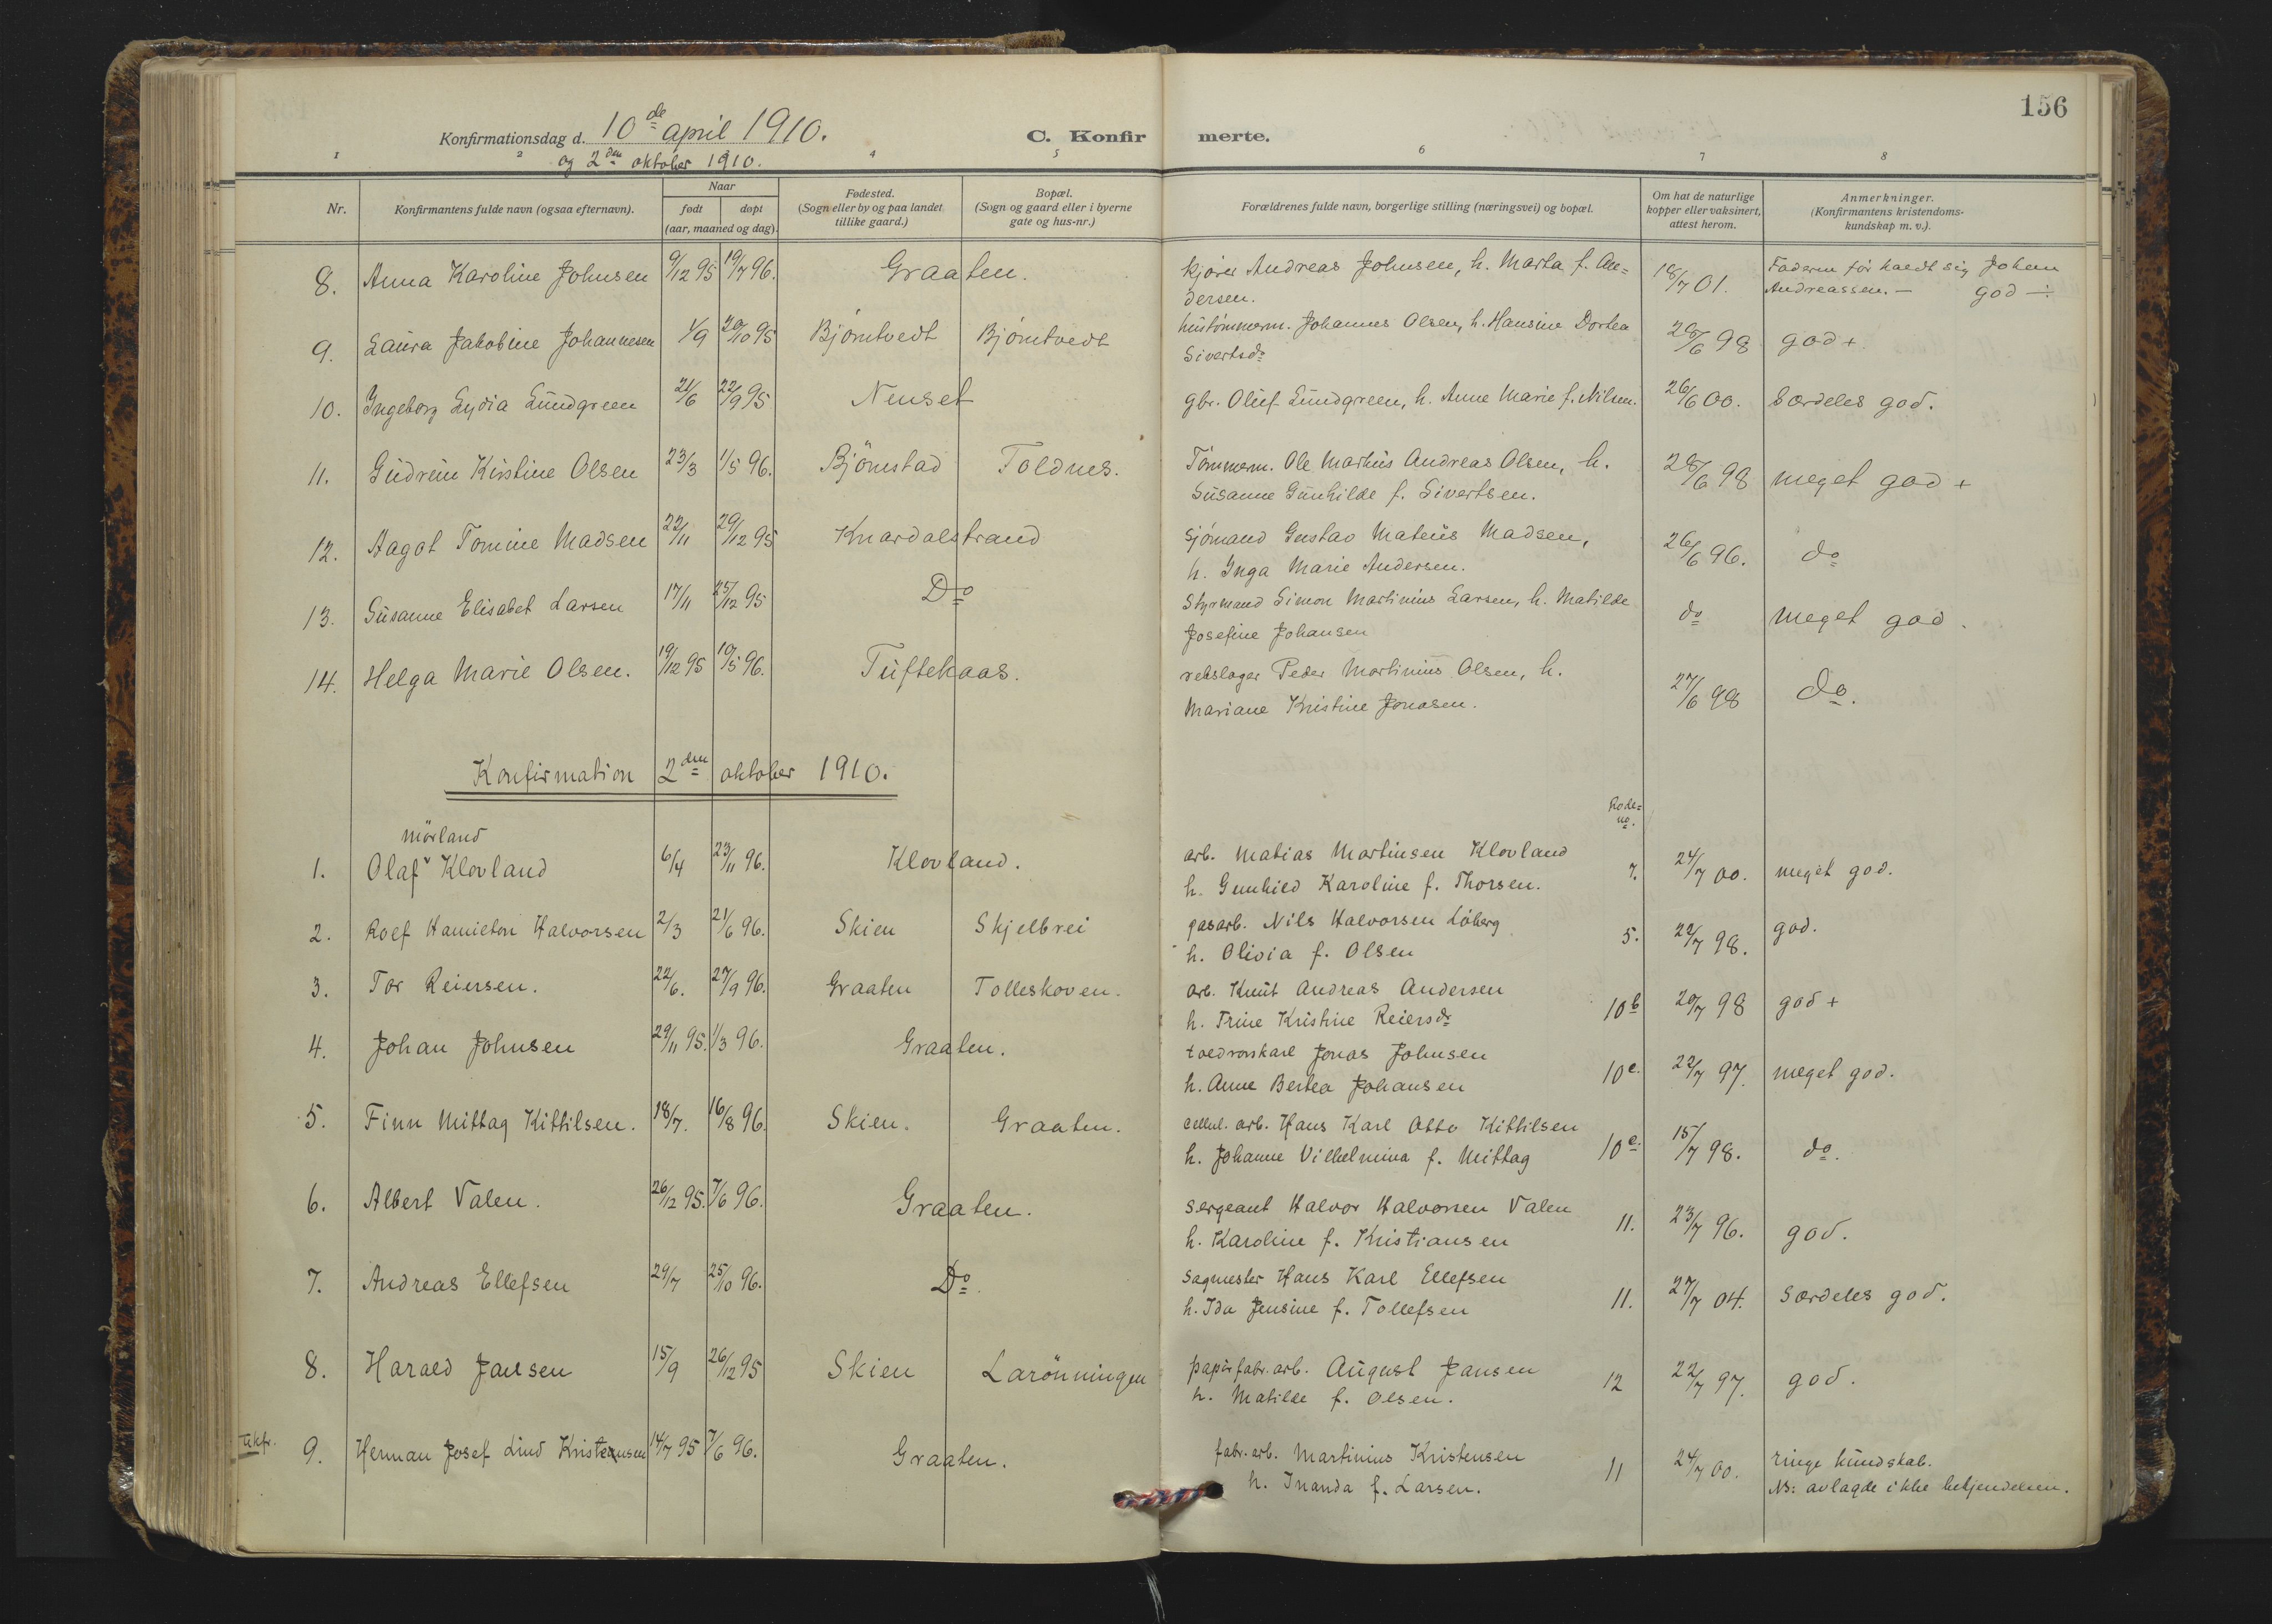 156
Konfirmationsdag d. 10de april 1910.
og 2den oktober 1910.
C. Konfirmerte.
1 2 3 4 5 6 7 8
Nr.
Konfirmantens fulde navn (ogsaa efternavn).
Naar
født døpt
(aar, maaned og dag).
Fødested.
(Sogn eller by og paa landet
tillike gaard.)
Bopæl.
(Sogn og gaard eller i byerne
gate og hus-nr.)
Forældrenes fulde navn, borgerlige stilling (næringsvei) og bopæl.
Om hat de naturlige
kopper eller vaksinert,
attest herom.
Anmerkninger.
(Konfirmantens kristendoms-
kundskap m. v.).
8. Anna Karoline Johnsen 9/12 95 19/7 96. Graaten. kjører Andreas Johnsen, h. Marta f. An= 18/7 01. Faderen før kaldt sig Johan
dersen. Andreassen. — god ÷
9. Laura Jakobine Johannesen 1/9 20/10 95 Bjørntvedt Bjørntvedt hustømmerm. Johannes Olsen, h. Hansine Dortea 28/6 98 god +
Sivertsdr
10. Ingeborg Lydia Lundgreen 21/6 22/9 95 Nenset gbr. Oluf Lundgreen, h. Anne Marie f. Nilsen. 26/6 00. Særdeles god.
11. Gudrun Kirstine Olsen 23/3 1/5 96. Bjørnstad Toldnes. Tømmerm. Ole Markus Andreas Olsen, h. 28/6 98 meget god +
Susanne Gunhilde f. Sivertsen.
12. Aagot Tomine Madsen 22/11 29/12 95 Knardalstrand Sjømand Gustav Mateus Madsen, 26/6 96. do
h. Inga Marie Andersen.
13. Susanne Elisabet Larsen 17/11 25/12 95 Do Styrmand Simon Martinius Larsen, h. Matilde do meget god.
Josefine Johansen
14. Helga Marie Olsen. 19/12 95 10/5 96. Tuftekaas. rebslager Peder Martinius Olsen, h. 27/6 98 do.
Mariane Kristine Jonasen.
Konfirmation 2den oktober 1910.
Rode=
no.
Mørland
1. Olaf v Klovland 6/4 23/11 96. Klovland. arb. Matias Martinsen Klovland 7. 24/7 00. meget god.
h. Gunhild Karoline f. Thorsen.
2. Rolf Hamilton Halvorsen 2/3 21/6 96. Skien Skjelbrei gasarb. Nils Halvorsen Løberg 5. 22/7 98. god.
h. Olivia f. Olsen
3. Tor Reiersen. 22/6. 27/9 96. Graaten Tolleskoven. arb. Knut Andreas Andersen 10b 20/7 98 god +
h. Trine Kristine Reiersdr
4. Johan Johnsen 29/11 95. 1/3 96. Graaten. Jonas Johnsen 10c. 22/7 97. meget god.
h. Anne Bertea Johansen
5. Finn Mittag Kittilsen. 18/7. 16/8 96. Skien. Graaten. cellul. arb. Hans Karl Otto Kittilsen 10c. 15/7 98. do.
h. Johanne Vilhelmina f. Mittag
6. Albert Valen. 26/12 95. 7/6 96. Graaten. Sergeant Halvor Halvorsen Valen 11. 23/7 96. god.
h. Karoline f. Kristiansen
7. Andreas Ellefsen 29/7 25/10 96. Do. Sagmester Hans Karl Ellefsen 11. 27/7 04. Særdeles god.
h. Ida Jensine f. Tollefsen
8. Harald Jansen 15/9 26/12 95 Skien Larønningen papirfabr. arb. August Jansen 12 22/7 97. god.
h. Matilde f. Olsen.
Utkfr. 9. Herman Josef Lind Kristensen 14/7 95 7/6 96. Graaten. fabr. arb. Martinius Kristensen 11 24/7 00. ringe kundskab.
h. Inanda f. Larsen. NB: avlagde ikke bekjendelsen.